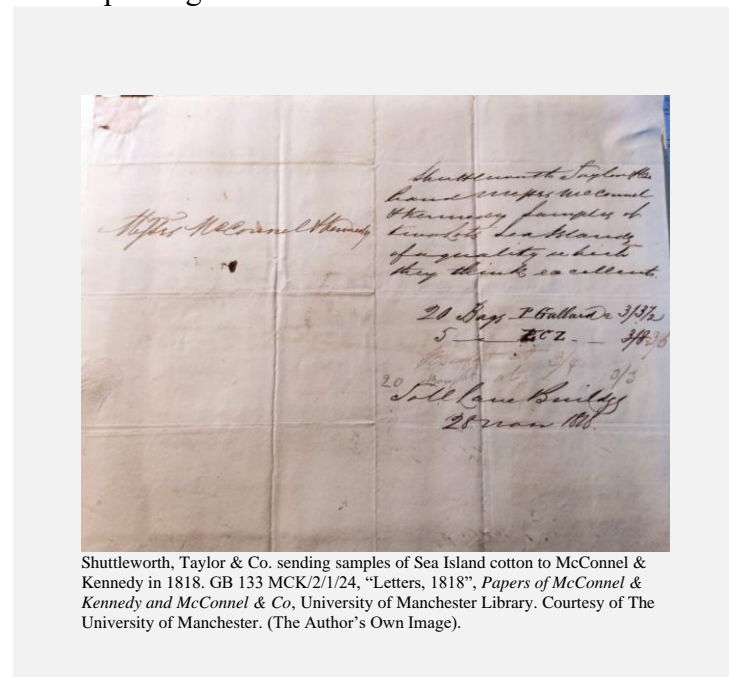 Messrs McConnel & Kennedy
Shuttleworth Taylor & Co
hand Messrs McConnel
& Kennedy samples of
two lots Sea Islands
of a quality which
they think excellent.
20 Bags P Gallard 3/3½
5 3/6
20 Bought at 3/3
Toll Lane Buildgs
28 Nov 1818.
Shuttleworth, Taylor & Co. sending samples of Sea Island cotton to McConnel &
Kennedy in 1818. GB 133 MCK/2/1/24, “Letters, 1818”, Papers of McConnel &
Kennedy and McConnel & Co, University of Manchester Library. Courtesy of The
University of Manchester. (The Author’s Own Image).